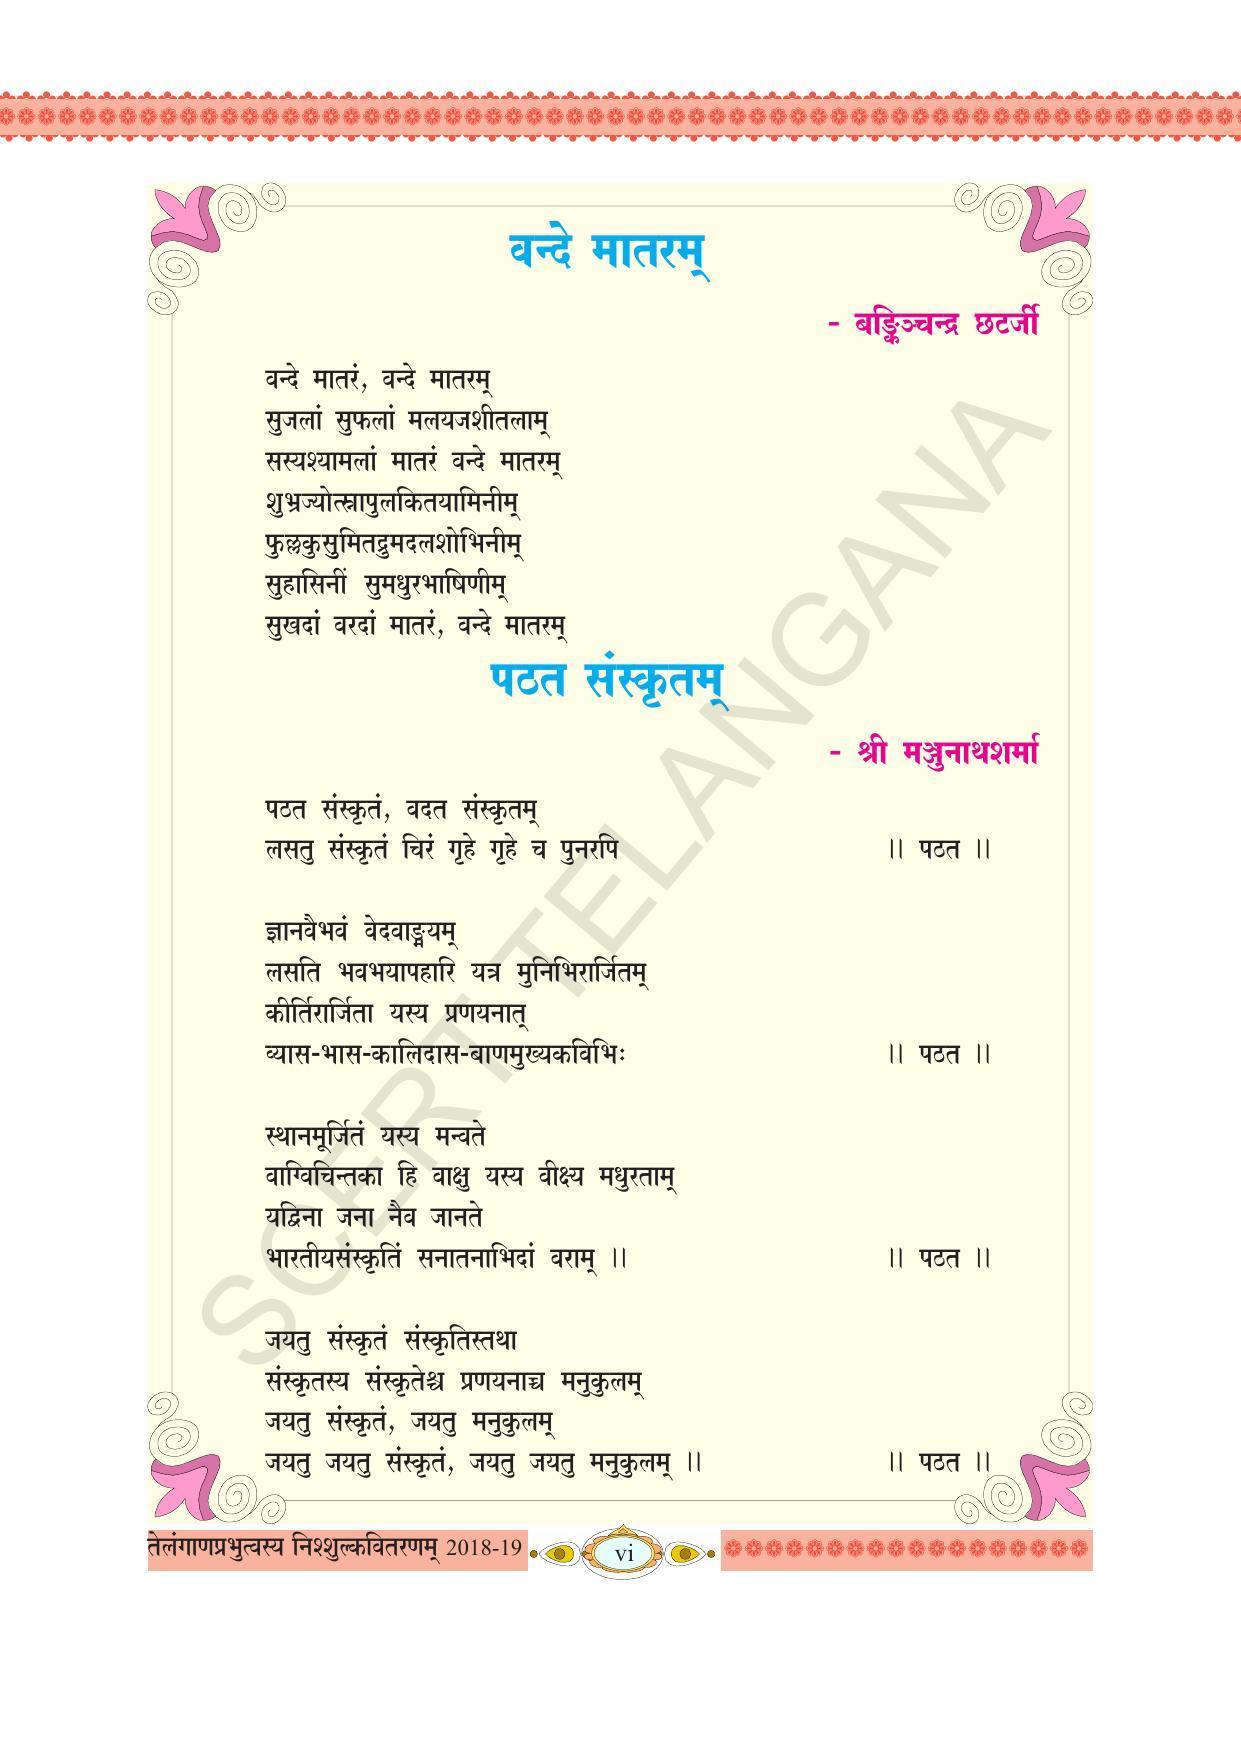 वन्दे मातरम्
- बङ्किञ्चन्द्र छटर्जी
वन्दे मातरं, वन्दे मातरम्
सुजलां सुफलां मलयजशीतलाम्
सस्यश्यामलां मातरं वन्दे मातरम्
शुभ्रज्योत्स्नापुलकितयामिनीम्
फुल्लकुसुमितद्रुमदलशोभिनीम्
सुहासिनीं सुमधुरभाषिणीम्
सुखदां वरदां मातरं, वन्दे मातरम्
पठत संस्कृतम्
- श्री मञ्जुनाथशर्मा
पठत संस्कृतं, वदत संस्कृतम्
लसतु संस्कृतं चिरं गृहे गृहे च पुनरपि ।। पठत ।।
ज्ञानवैभवं वेदवाङ्मयम्
लसति भवभयापहारि यत्र मुनिभिरार्जितम्
कीर्तिरार्जिता यस्य प्रणयनात्
व्यास-भास-कालिदास-बाणमुख्यकविभिः ।। पठत ।।
स्थानमूर्जितं यस्य मन्वते
वाग्विचिन्तका हि वाक्षु यस्य वीक्ष्य मधुरताम्
यद्विना जना नैव जानते
भारतीयसंस्कृतिं सनातनाभिदां वराम् ।। ।। पठत ।।
जयतु संस्कृतं संस्कृतिस्तथा
संस्कृतस्य संस्कृतेश्च प्रणयनाच्च मनुकुलम्
जयतु संस्कृतं, जयतु मनुकुलम्
जयतु जयतु संस्कृतं, जयतु जयतु मनुकुलम् ।। ।। पठत ।।
SCERT TELANGANA
तेलंगाणप्रभुत्वस्य निश्शुल्कवितरणम् 2018-19
vi